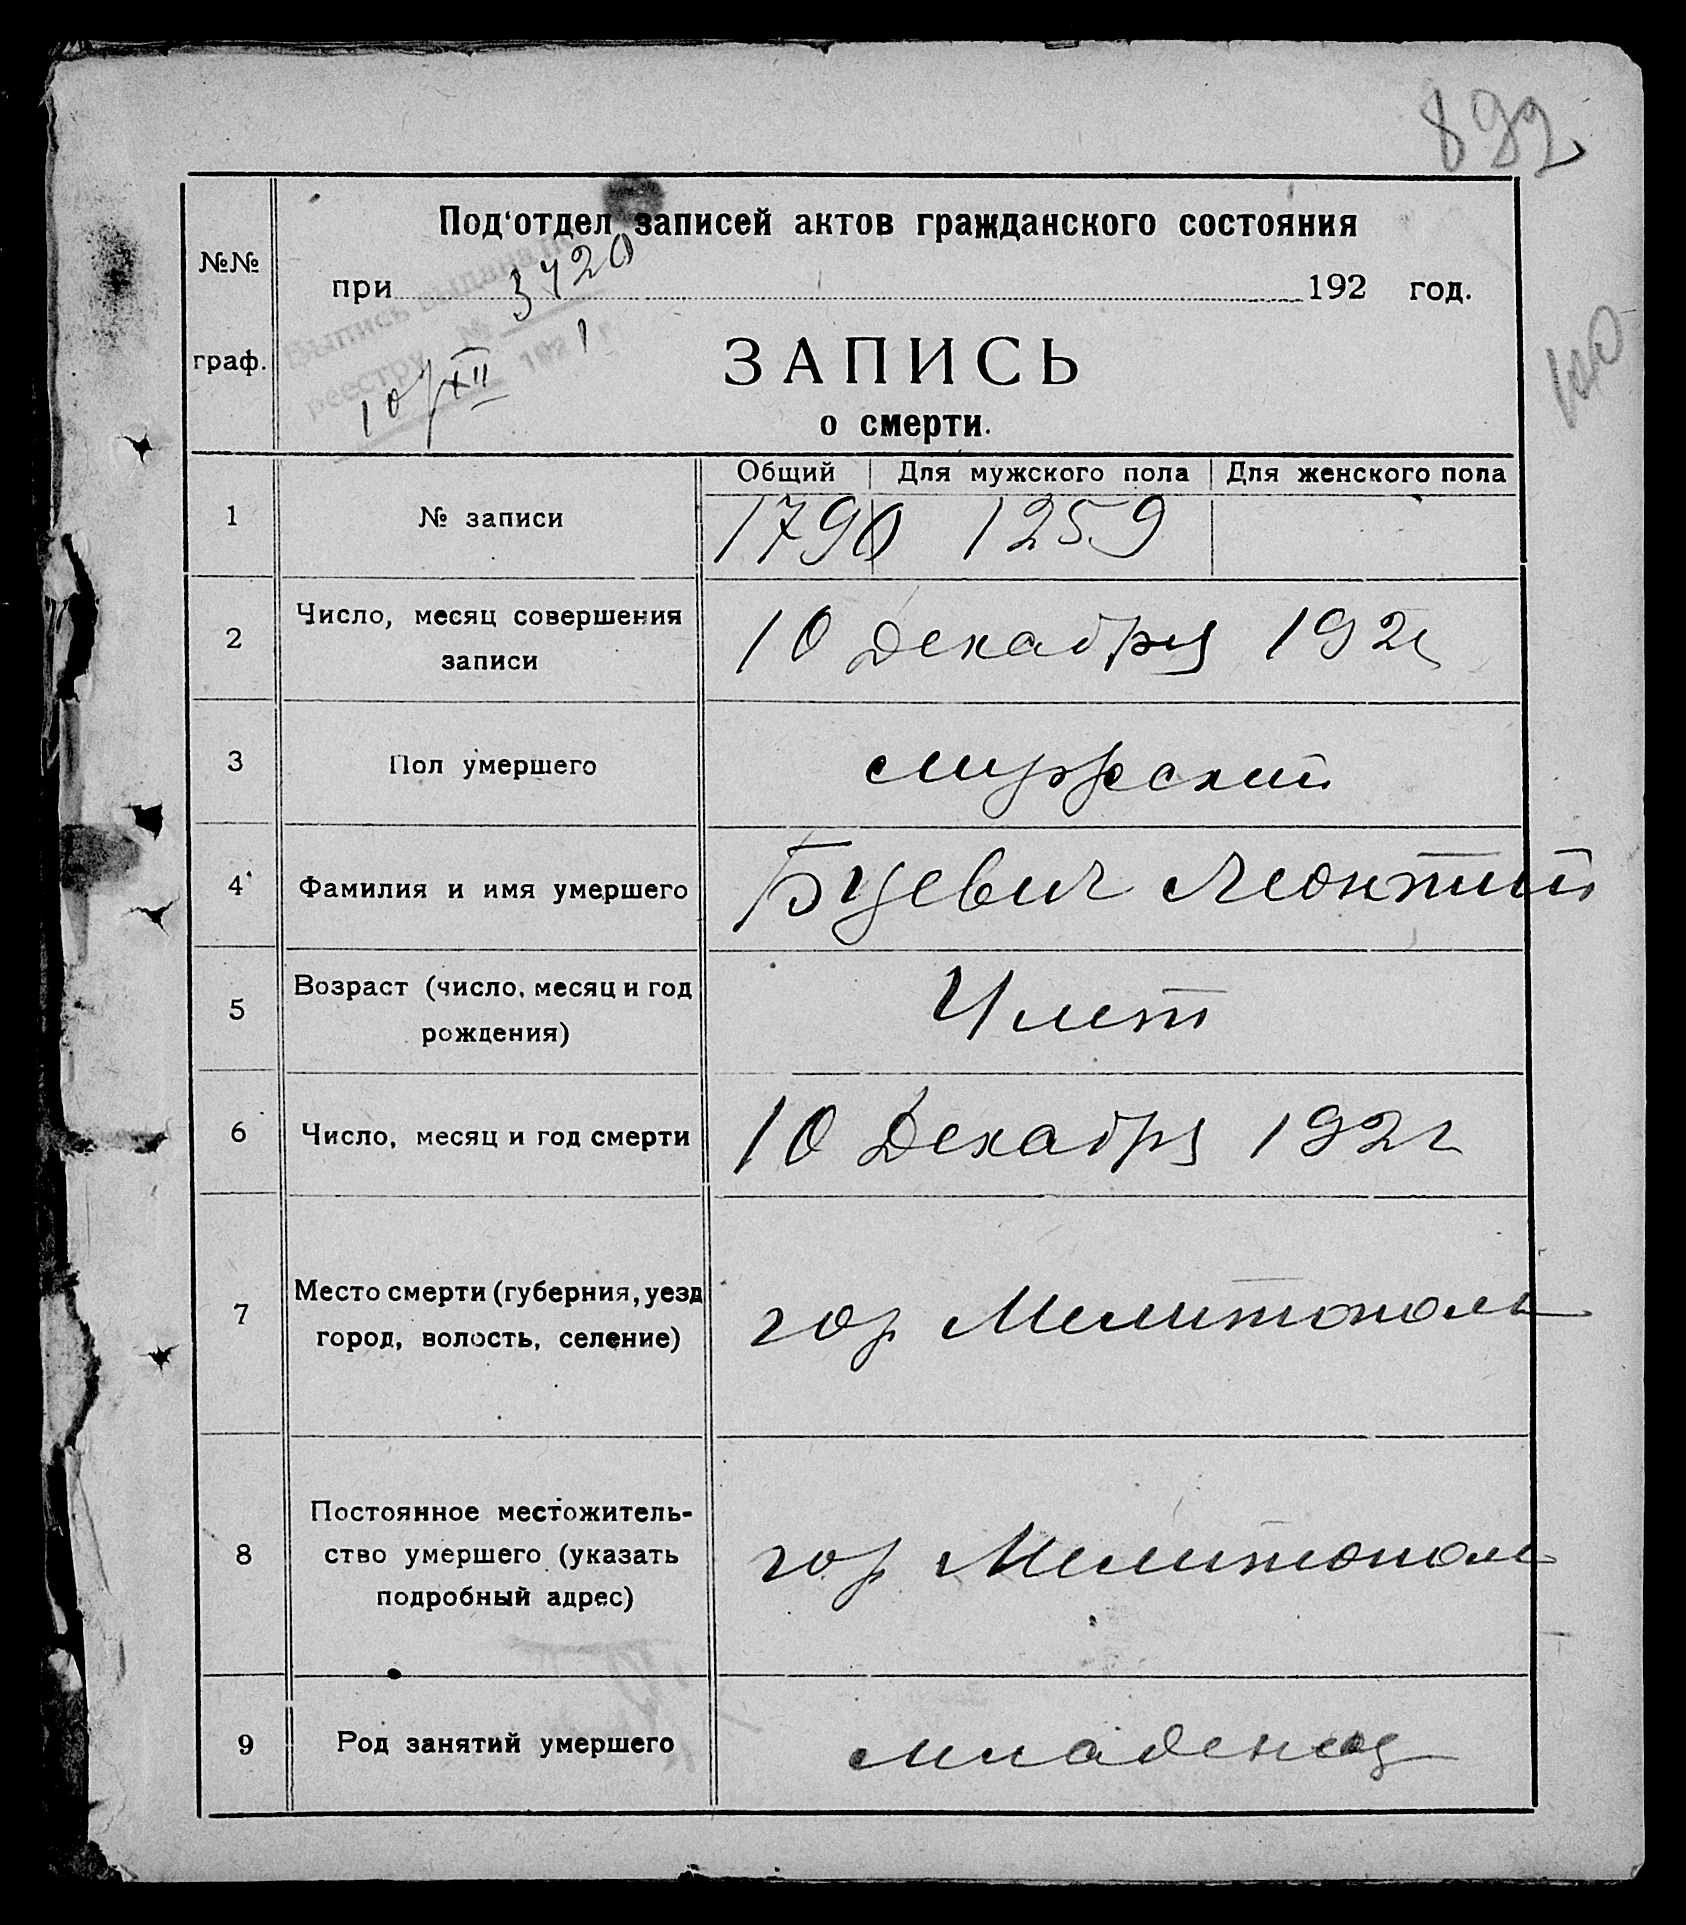 892
Под'отдел записей актов гражданского состояния
№№
при 192 год.
Выпись выдана по
реестру № 3420
10/XII 1921 г.
граф.
ЗАПИСЬ
о смерти.
Общий Для мужского пола Для женского пола
1 № записи 1790 1259
2 Число, месяц совершения
записи
10 Декабря 1921
3 Пол умершего мужской
4 Фамилия и имя умершего Буевич Леонтий
5 Возраст (число, месяц и год
рождения)
4 лет
6 Число, месяц и год смерти 10 Декабря 1921
7 Место смерти (губерния, уезд
город, волость, селение)
гор Мелитополь
8 Постоянное местожитель-
ство умершего (указать
подробный адрес)
гор Мелитополь
9 Род занятий умершего младенец